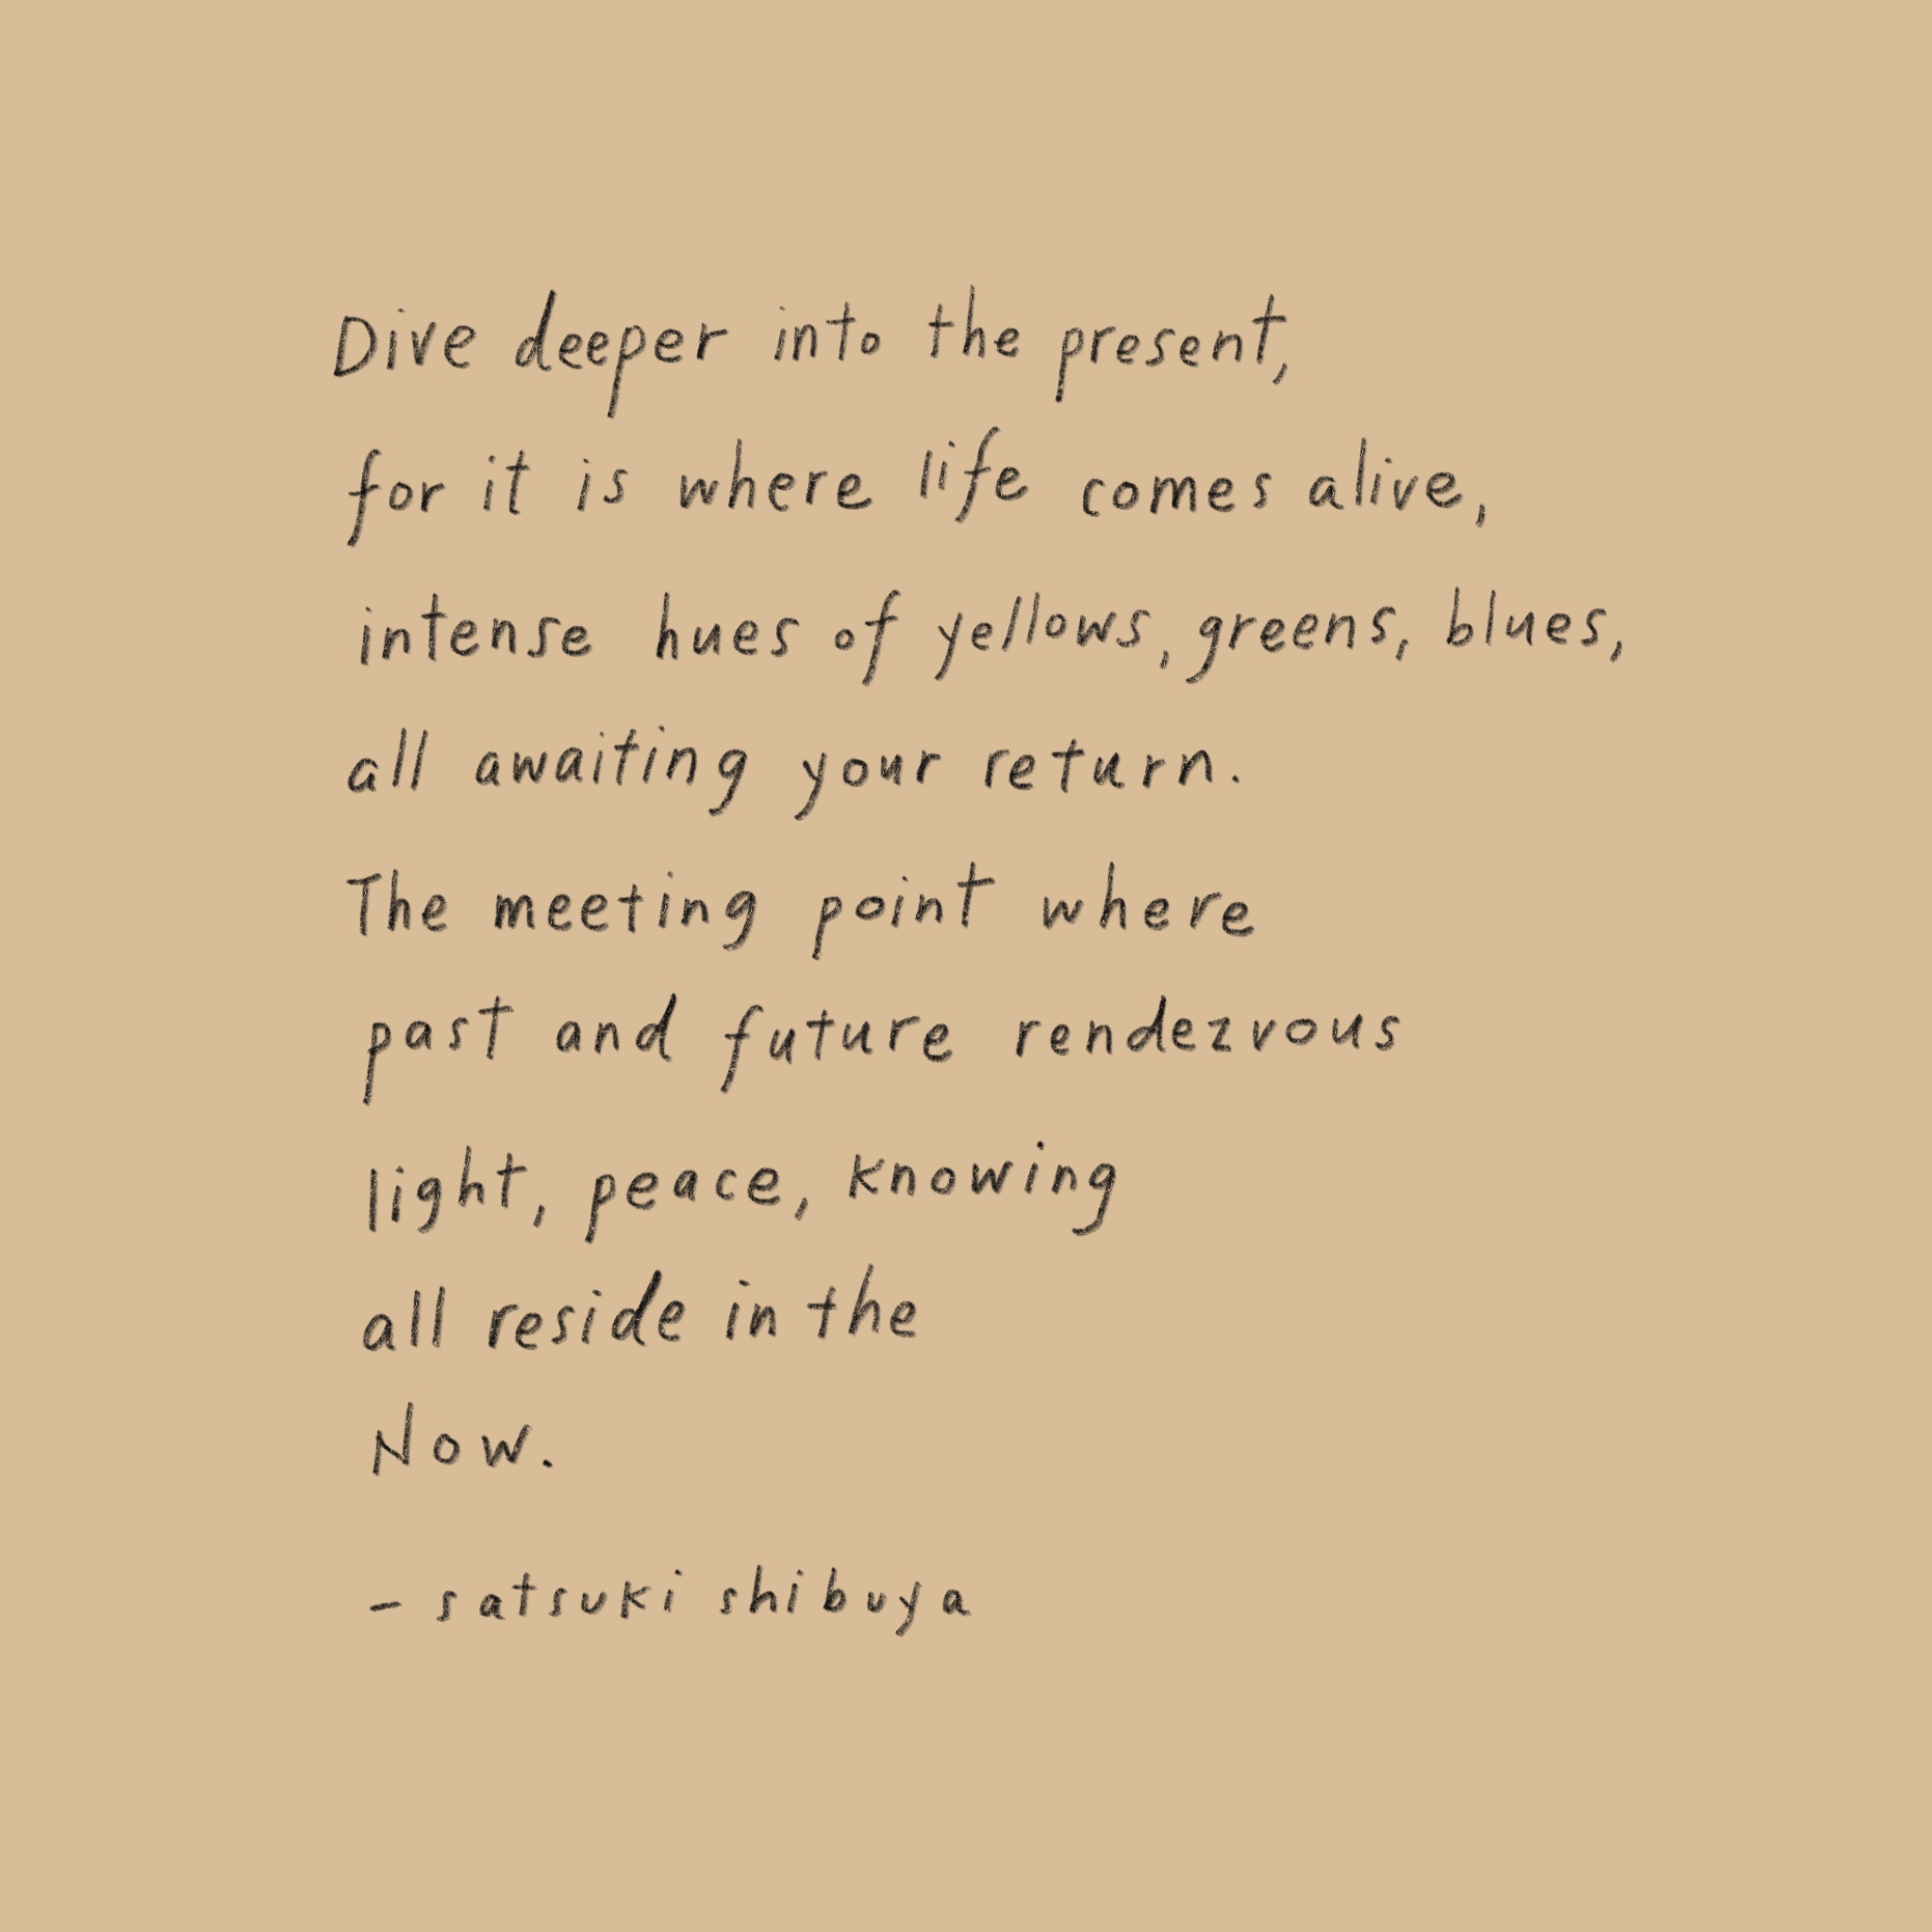 Dive deeper into the present,
for it is where life comes alive,
intense hues of yellows, greens, blues,
all awaiting your return.
The meeting point where
past and future rendezvous
light, peace, knowing
all reside in the
Now.
- satsuki shibuya